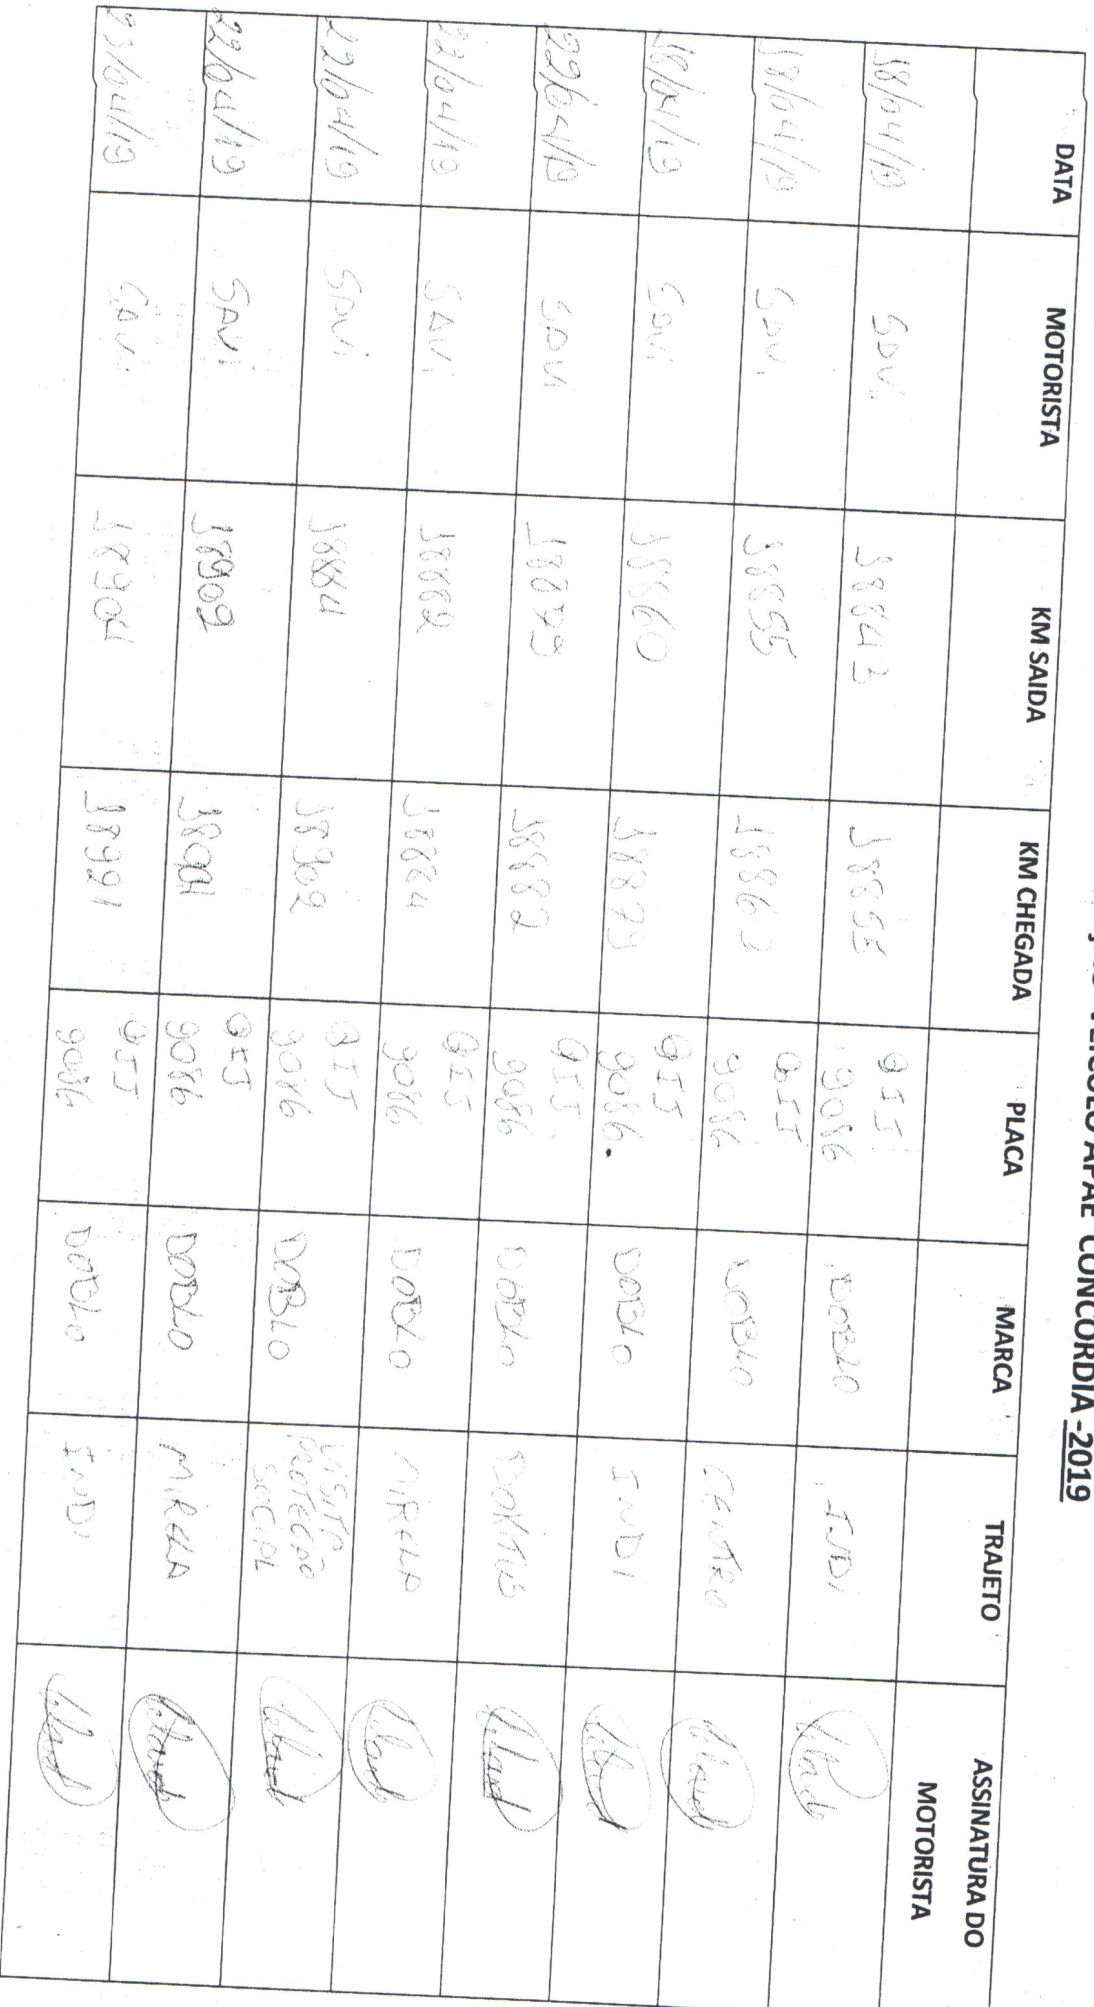 VEÍCULO APAE CONCÓRDIA -2019
DATA MOTORISTA KM SAIDA KM CHEGADA PLACA MARCA TRAJETO ASSINATURA DO MOTORISTA
18/04/19 SAVI 18843 18855 QIJ 9086 DOBLO INDI
18/04/19 SAVI 18855 18860 QIJ 9086 DOBLO CENTRO
18/04/19 SAVI 18860 18879 QIJ 9086. DOBLO INDI
22/04/19 SAVI 18879 18882 QIJ 9086 DOBLO
22/04/19 SAVI 18882 18884 QIJ 9086 DOBLO MIRELA
22/04/19 SAVI 18884 18902 QIJ 9086 DOBLO VISITA PROTEÇÃO SOCIAL
22/04/19 SAVI 18902 18904 QIJ 9086 DOBLO MIRELA
23/04/19 SAVI 18904 18921 QIJ 9086 DOBLO INDI